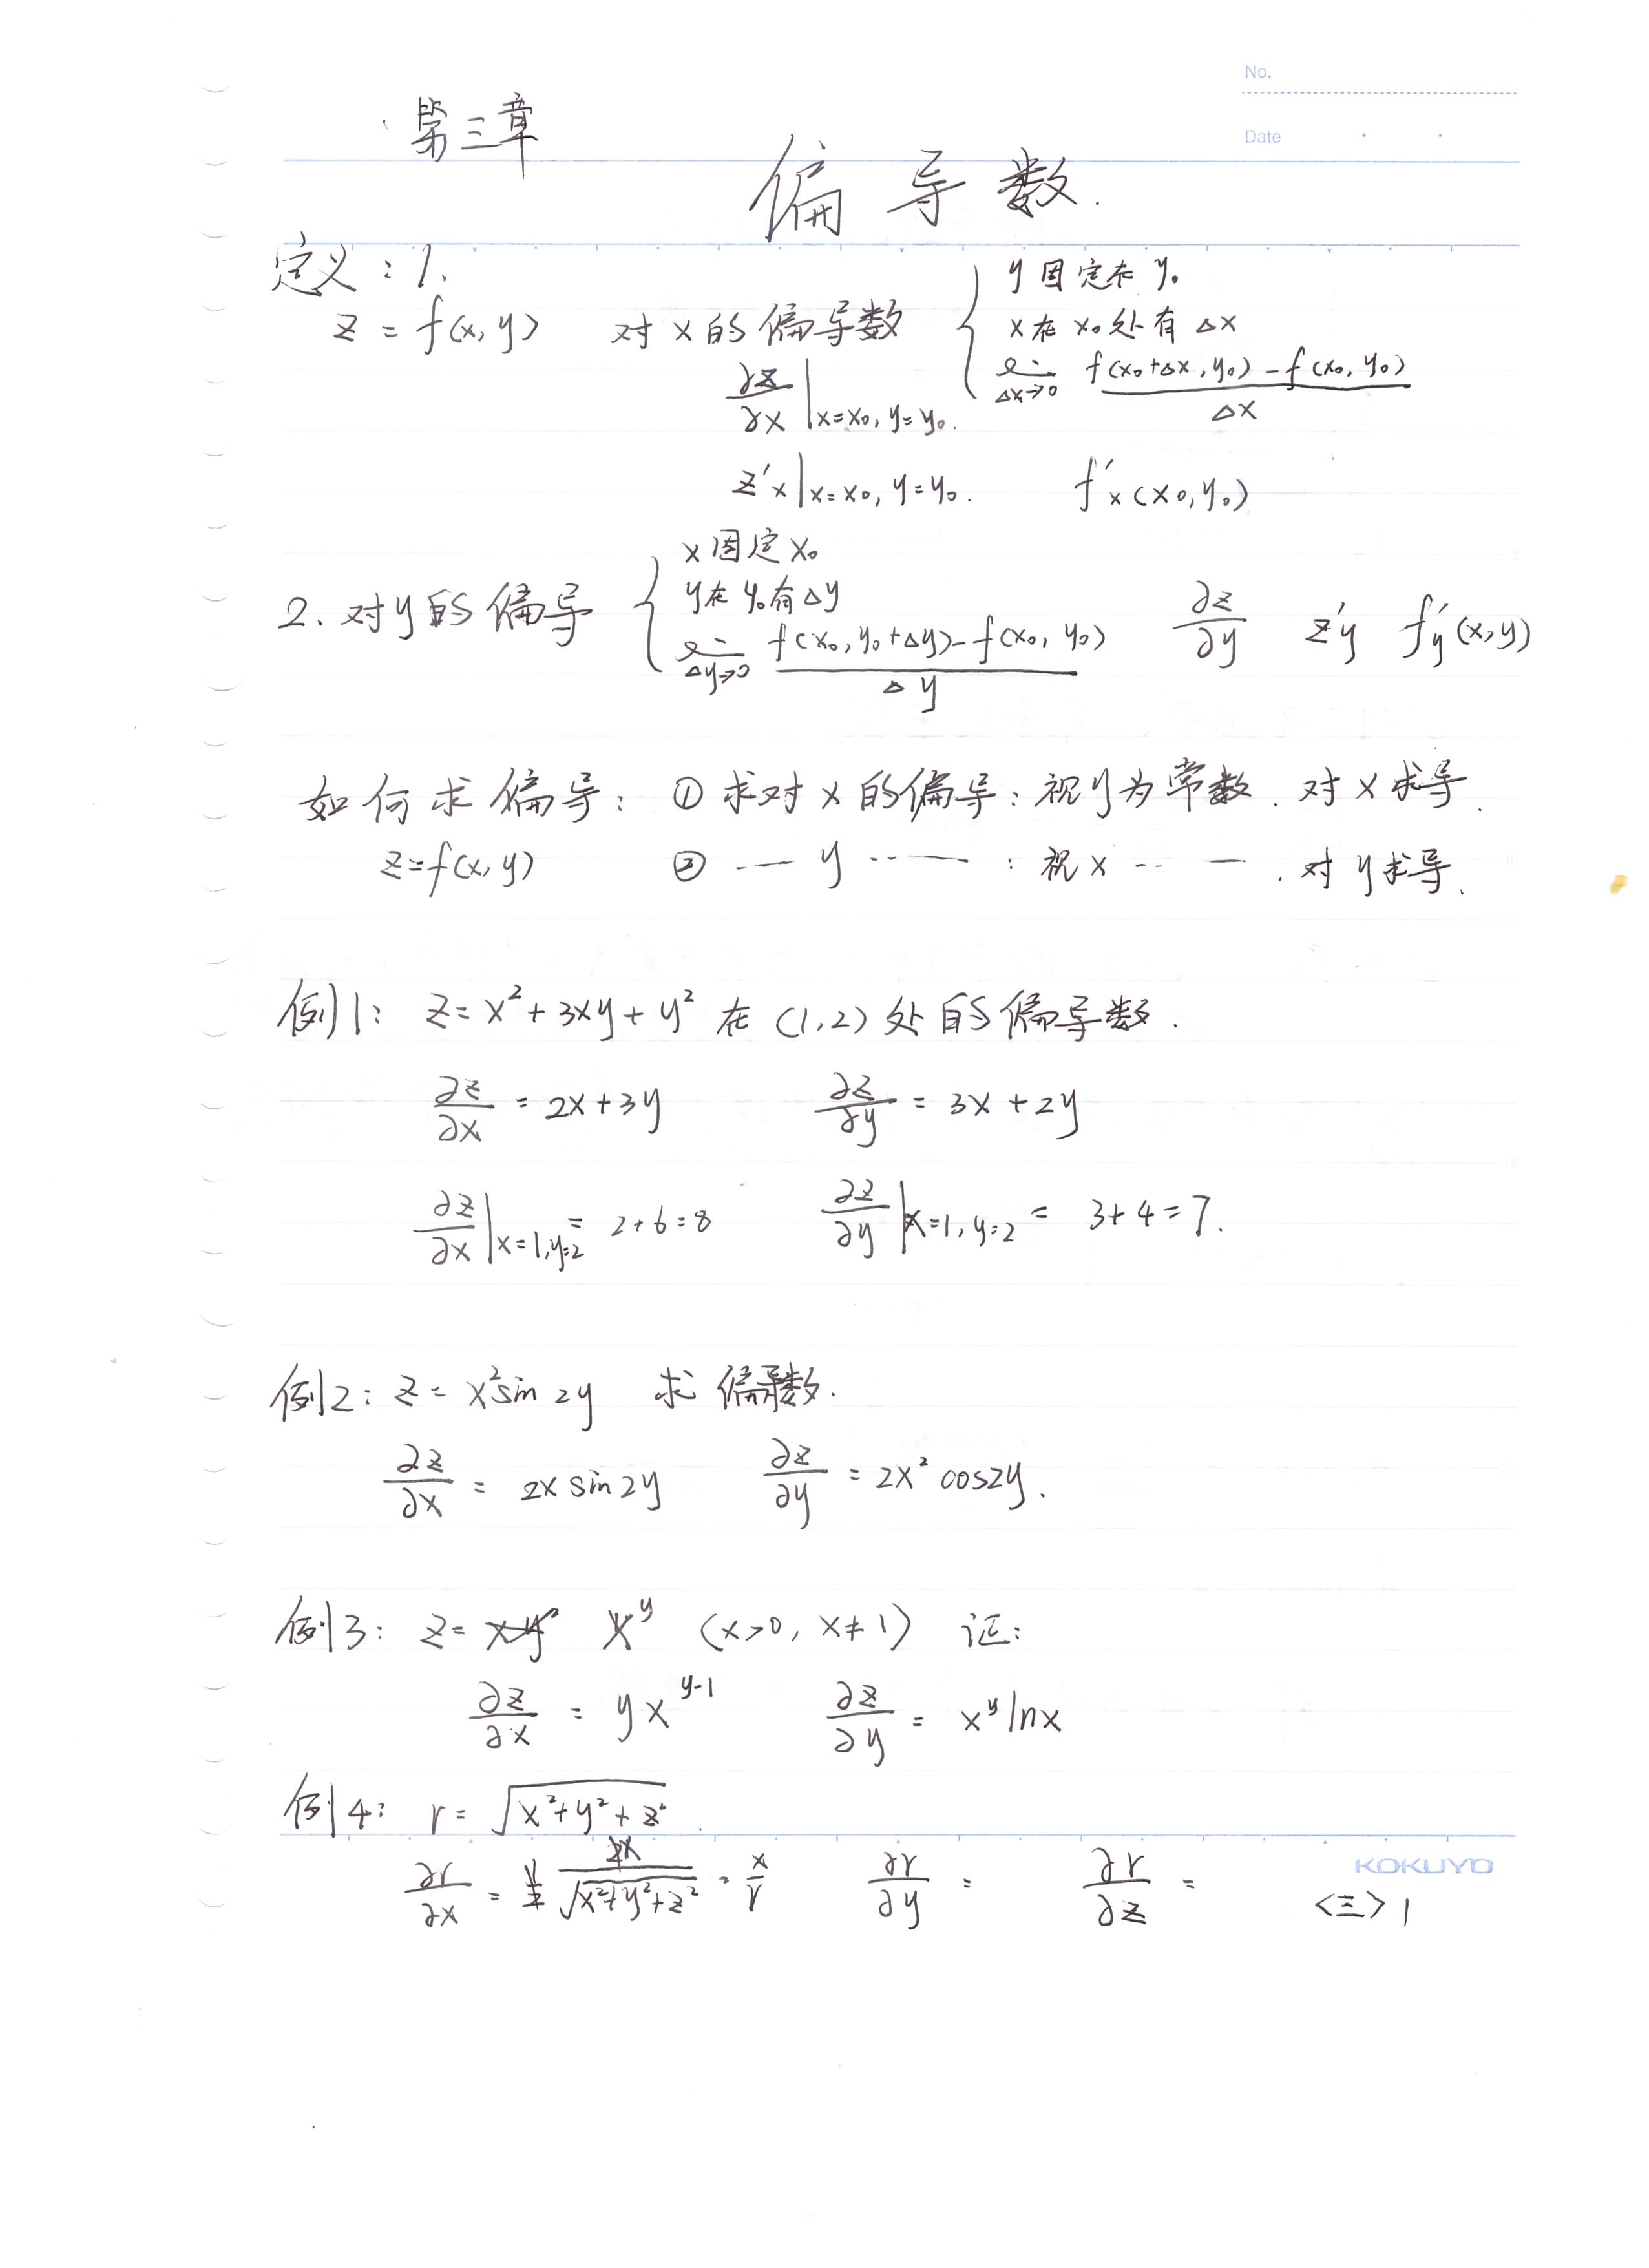 No.
第三章
Date · ·
偏导数.
定义：1.
y固定在y₀
z = f(x, y) 对x的偏导数 { x在x₀处有Δx
∂z/∂x |x=x₀, y=y₀. lim Δx→0 (f(x₀+Δx, y₀) - f(x₀, y₀))/Δx
z'x |x=x₀, y=y₀. f'x(x₀, y₀)
x固定x₀
y在y₀有Δy
2. 对y的偏导 { lim Δy→0 (f(x₀, y₀+Δy) - f(x₀, y₀))/Δy ∂z/∂y z'y f'y(x, y)
如何求偏导： ① 求对x的偏导：视y为常数. 对x求导.
z=f(x, y) ② — y ··· — ：视x ·· — . 对y求导.
例1： z= x² + 3xy + y² 在 (1, 2) 处的偏导数.
∂z/∂x = 2x+3y ∂z/∂y = 3x+2y
∂z/∂x |x=1, y=2 = 2+6=8 ∂z/∂y |x=1, y=2 = 3+4=7.
例2： z= x²sin 2y 求偏导数.
∂z/∂x = 2x sin2y ∂z/∂y = 2x² cos2y.
例3： z= x^y (x>0, x≠1) 证：
∂z/∂x = yx^(y-1) ∂z/∂y = x^y lnx
例4： r= √(x²+y²+z²)
∂r/∂x = 1/2 2x/√(x²+y²+z²) = x/r ∂r/∂y = ∂r/∂z =
KOKUYO
<三> 1